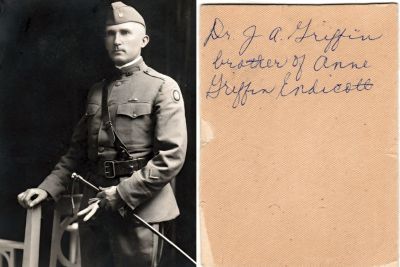 Dr. J A. Griffin
brother of Anne
Griffin Endicott